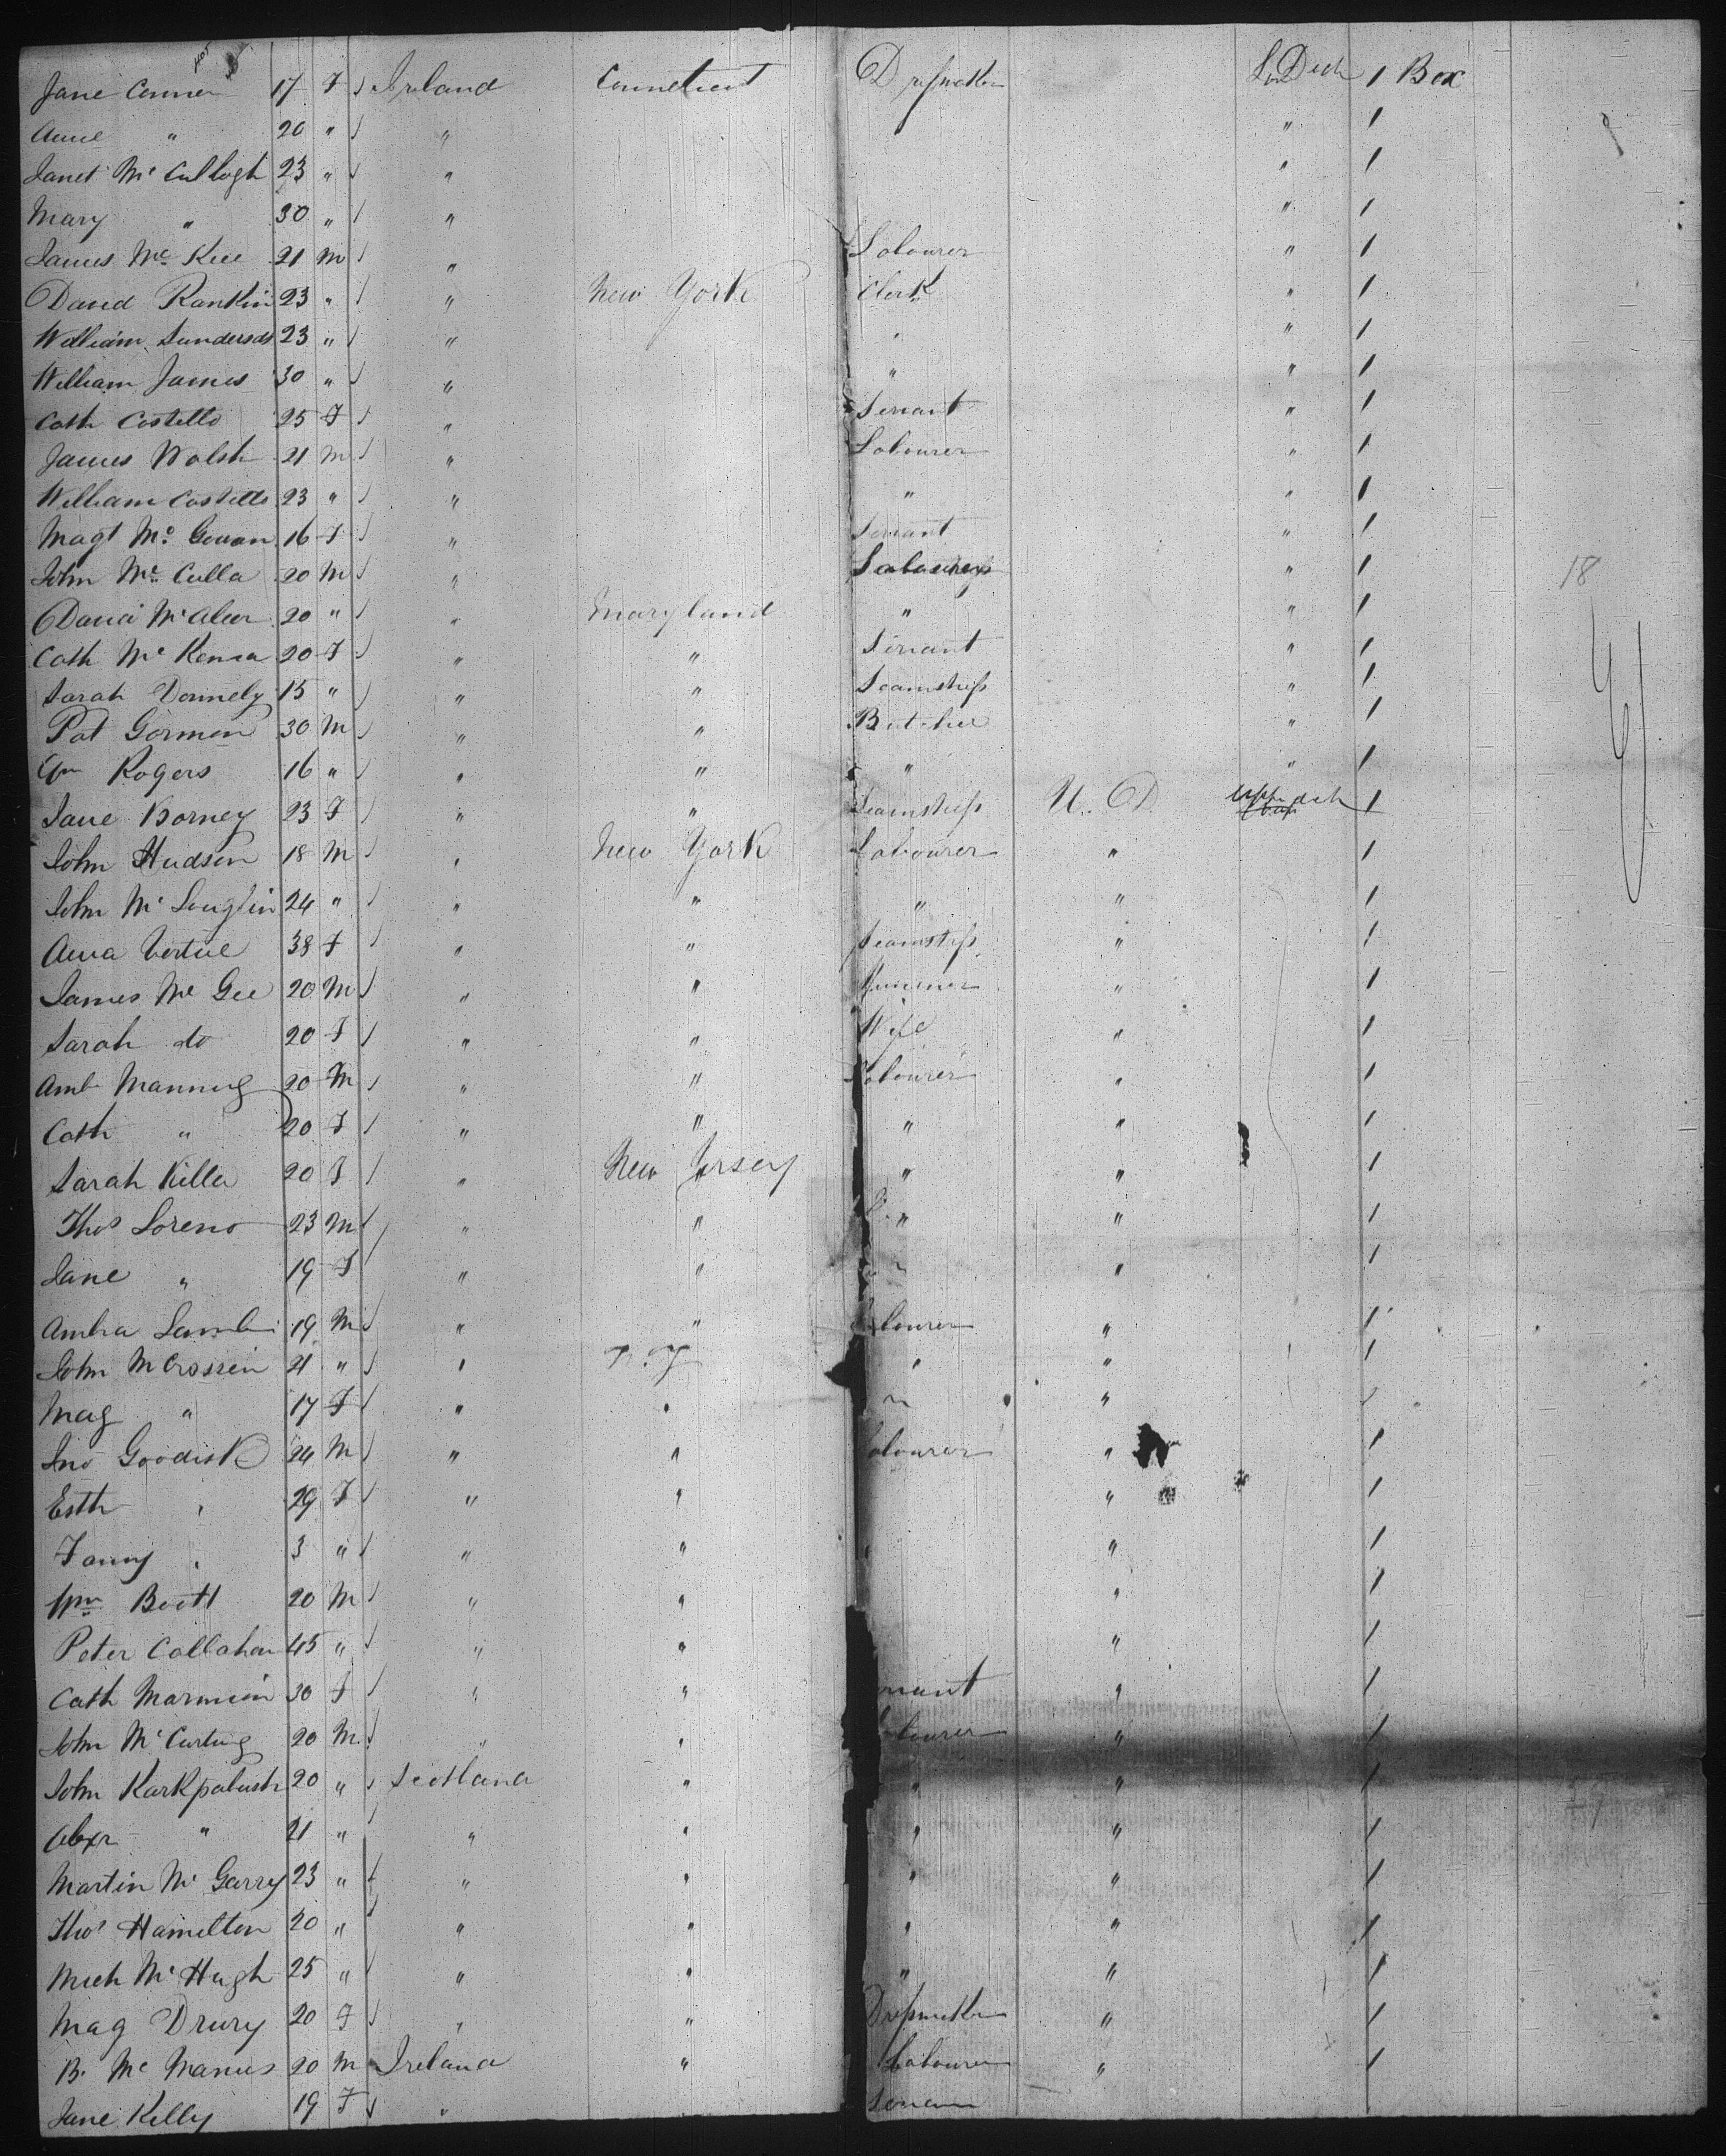 Jane Conner 17 F Ireland Conneticut Dressmaker Low Deck 1 Box
Anne " 20 " " " 1
Janet McCullogh 23 " " " 1
Mary " 30 " " " 1
James McKee 21 M " Labourer " 1
David Rankin 23 " " New York Clerk " 1
William Sanderson 23 " " " " 1
William James 30 " " " " 1
Cath Costello 25 F " Servant " 1
James Walsh 21 M " Labourer " 1
William Costello 23 " " " " 1
Magt McGowan 16 F " Servant " 1
John McCulla 20 M " Labourer " 1
McAleer 20 " " Maryland " " 1
Cath McKenna 20 F " " Servant " 1
Sarah Donnely 15 " " " Seamstress " 1
Pat Gorman 30 M " " Butcher " 1
Wm Rogers 16 " " " " " 1
Jane Borney 23 F " " Seamstress U. D Upper deck 1
John Hudson 18 M " New York Labourer " 1
John McLouglin 24 " " " " " 1
Anna Vertue 38 F " " Seamstress " 1
James McGee 20 M " " " 1
Sarah do 20 F " " Wife " 1
Amb Manning 20 M " " Labourer " 1
Cath " 20 F " " " " 1
Sarah Killer 20 F " New Jersey " " 1
Thos Loreno 23 M " " " " 1
Jane " 19 F " " " " 1
Ambra Lamb 19 M " " Labourer " 1
John McCrossin 21 " " N. Y " " 1
Mag " 17 F " " " " 1
Jno Goodisk 24 M " " Labourer " 1
Esth " 29 F " " " 1
Fanny " 3 " " " " 1
Wm Boott 20 M " " " 1
Peter Callahan 45 " " " " 1
Cath Marmion 30 F " " Servant " 1
John McCurting 20 M " " Labourer " 1
John Karkpalush 20 " Scotland " " " 1
Alexr " 21 " " " " " 1
Martin McGarry 23 " " " " " 1
Thos Hamilton 20 " " " " " 1
Mich McHugh 25 " " " " " 1
Mag Drury 20 F " " Dressmaker " 1
B. McManus 20 M Ireland " Labourer " 1
Jane Kelly 19 F "
18